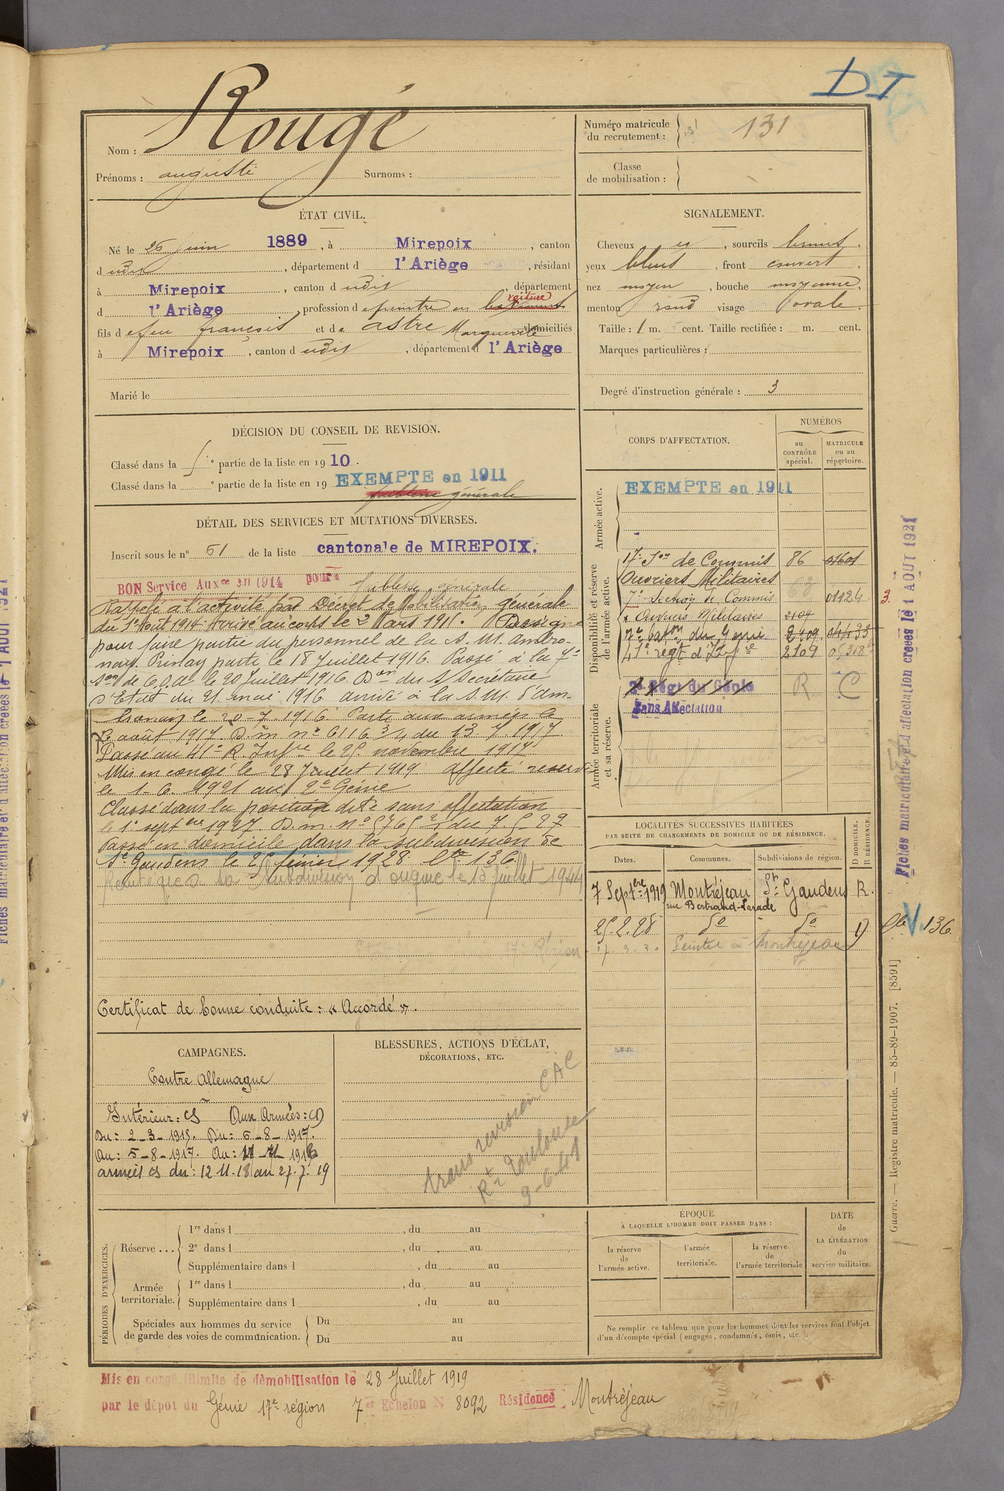 DT
Nom : Rougé
Prénoms : auguste Surnoms :
Numéro matricule du recrutement : 131
Classe de mobilisation :
ÉTAT CIVIL.
Né le 26 juin 1889, à Mirepoix, canton
dudit, département d l'Ariège, résidant
à Mirepoix, canton dudit, département
d l'Ariège, profession de peintre en batiments voiture
fils de feu françois et de astre Marguerite domiciliés
à Mirepoix, canton dudit, département d l'Ariège
Marié le
SIGNALEMENT.
Cheveux , sourcils bruns,
yeux bleus, front couvert,
nez moyen, bouche moyenne,
menton rond visage ovale.
Taille : 1 m. cent. Taille rectifiée : m. cent.
Marques particulières :
Degré d'instruction générale : 3
DÉCISION DU CONSEIL DE REVISION.
Classé dans la partie de la liste en 1910.
Classé dans la partie de la liste en 19 EXEMPTÉ en 1911
faiblesse générale
DÉTAIL DES SERVICES ET MUTATIONS DIVERSES.
Inscrit sous le n° 61 de la liste cantonale de MIREPOIX.
BON Service Auxre en 1914 pour faiblesse générale
Rappelé à l'activité par Décret de Mobilisation générale
du 1er Aout 1914. Arrivé au corps le 2 Mars 1915. Désigné
pour faire partie du personnel de la S. M. ambro-
nay. Priay parti le 18 Juillet 1916. Passé à la 7e
Son de C.O.A. le 20 Juillet 1916. Don du S Secrétaire
d'Etat du 21 mai 1916 arrivé à la S.M. d'Am
bronay le 20-7-1916. Parti aux armées le
6 août 1917. D.m n° 6116 3/4 du 23 7 1917
Passé au 41e R. Infrie le 25 novembre 1917
Mis en congé le 28 Juillet 1919 affecté réserve
le 1-6-1921 au 2e Génie
Classé dans la position dite sans affectation
le 1er septbre 1927. D.m. n° du 7 5-27
Passé en domicile dans la subdivision de
St Gaudens le 25 février 1928 Cle 136
Réintégré à la subdivision d'origine le 15 Juillet 1944
17e Région
Certificat de bonne conduite : « Accordé ».
CORPS D'AFFECTATION.
NUMÉROS
au CONTRÔLE spécial.
MATRICULE ou au répertoire.
Armée active.
EXEMPTÉ en 1911
Disponibilité et réserve de l'armée active.
17e Son de Commis 86
Ouvriers Militaires
7e Section de Commis 01124 3.
& Ouvriers Militaires 2109
7e baton du Génie 2109
41e régt d'Infrie 2109
Armée territoriale et sa réserve.
2e Régt du Génie
Sans Affectation
LOCALITÉS SUCCESSIVES HABITÉES
PAR SUITE DE CHANGEMENTS DE DOMICILE OU DE RÉSIDENCE.
Dates. Communes. Subdivisions de région. D DOMICILE. R RÉSIDENCE.
7 Septbre 1919 Montréjeau St Gaudens R.
rue Bertrand-Larade
25.2.28 do do D 136
Peintre à Montréjeau
CAMPAGNES.
Contre Allemagne
Intérieur : CS Aux Armées : CD
Du : 2-3-1915. Du : 6-8-1917.
Au : 5-8-1917. Au : 11-11-1918
armées CS du : 12.11.18 au 27.7.19
BLESSURES, ACTIONS D'ÉCLAT,
DÉCORATIONS, ETC.
trans revision CAC
Rt Toulouse
9-6-41
PÉRIODES D'EXERCICES.
Réserve ... 1re dans l , du au
2e dans l , du au
Supplémentaire dans l , du au
Armée territoriale. 1re dans l , du au
Supplémentaire dans l , du au
Spéciales aux hommes du service de garde des voies de communication. Du au
Du au
EPOQUE
À LAQUELLE L'HOMME DOIT PASSER DANS :
la réserve de l'armée active.
l'armée territoriale.
la réserve de l'armée territoriale
DATE de LA LIBÉRATION du service militaire.
Ne remplir ce tableau que pour les hommes dont les services font l'objet
d'un décompte spécial (engagés, condamnés, omis, etc.).
Mis en congé illimité de démobilisation le 28 Juillet 1919
par le dépot du Génie 17e région 7e Echelon N 8092 Résidence Montréjeau
Fiches matriculaire et d'affectation créées le 1 AOUT 1921
Guerre. — Registre matricule. — 85-89-1907. [8591]